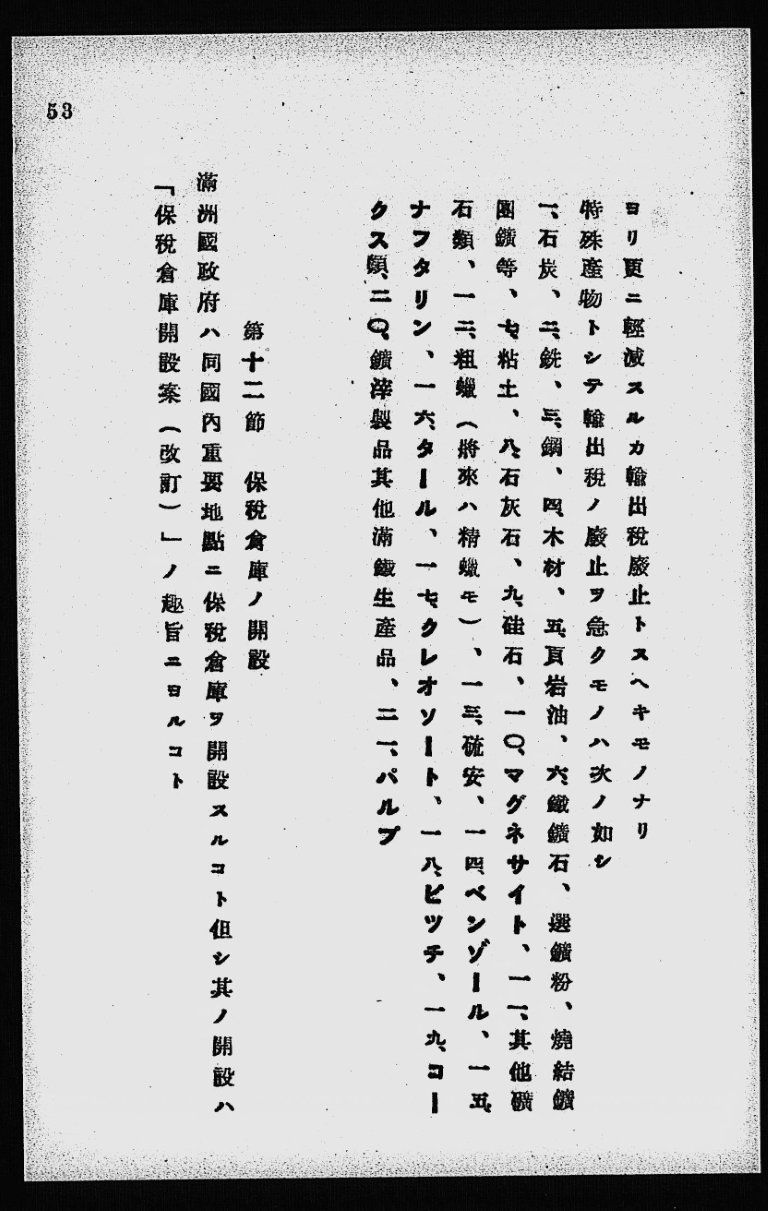 53
ヨリ更ニ輕減スルカ輸出稅廢止トスヘキモノナリ
特殊產物トシテ輸出稅ノ廢止ヲ急クモノハ次ノ如シ
一、石炭、二、銑、三、鋼、四、木材、五、頁岩油、六、鐵鑛石、選鑛粉、燒結鑛
團鑛等、七、粘土、八、石灰石、九、硅石、一〇、マグネサイト、一一、其他礦
石類、一二、粗蠟（將來ハ精蠟モ）、一三、硫安、一四、ベンゾール、一五、
ナフタリン、一六、タール、一七、クレオソート、一八、ピツチ、一九、コー
クス類、二〇、鑛滓製品其他滿鐵生產品、二一、パルプ
第十二節　保稅倉庫ノ開設
滿洲國政府ハ同國內重要地點ニ保稅倉庫ヲ開設スルコト但シ其ノ開設ハ
「保稅倉庫開設案（改訂）」ノ趣旨ニヨルコト